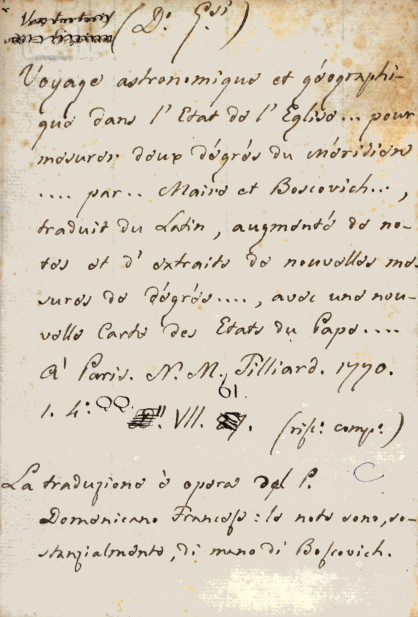 (Do. Gsi.)
Voyage astronomique et géographi-
que dans l'Etat de l'Eglise... pour
mesurer deux dégrés du méridien
.... par.. Maire et Boscovich...,
traduit du Latin, augmenté de no-
tes et d'extraits de nouvelles me-
sures de dégrés...., avec une nou-
velle Carte des Etats du Pape....
A Paris. N. M. Tilliard. 1770.
61.
1. 4.o QQ VII.
(rift.o comp.o)
C
La traduzione è opera del P.
Domenicano Francese: le note sono, so-
stanzialmente, di mano di Boscovich.